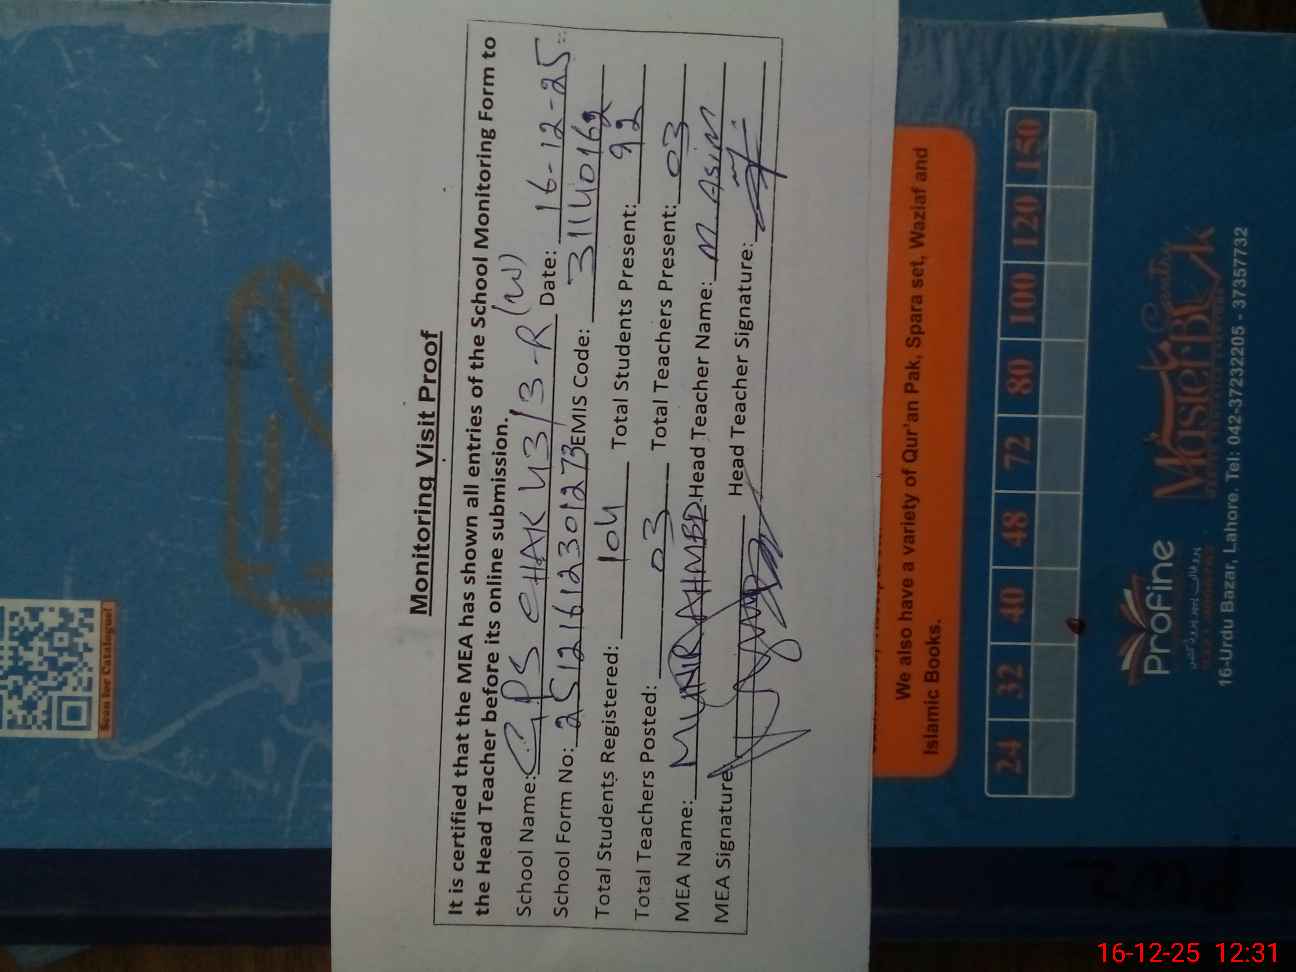 Monitoring Visit Proof
It is certified that the MEA has shown all entries of the School Monitoring Form to
the Head Teacher before its online submission.
School Name: GPS CHAK 43/3-R (W) Date: 16-12-25
School Form No: 25121612301273 EMIS Code: 31140162
Total Students Registered: 104 Total Students Present: 92
Total Teachers Posted: 03 Total Teachers Present: 03
MEA Name: MUNIR AHMED Head Teacher Name: M. Asim
MEA Signature: Head Teacher Signature:
Scan for Catalogue!
We also have a variety of Qur'an Pak, Spara set, Waziaf and
Islamic Books.
24 32 40 48 72 80 100 120 150
Profine
16-Urdu Bazar, Lahore. Tel: 042-37232205 - 37357732
16-12-25 12:31